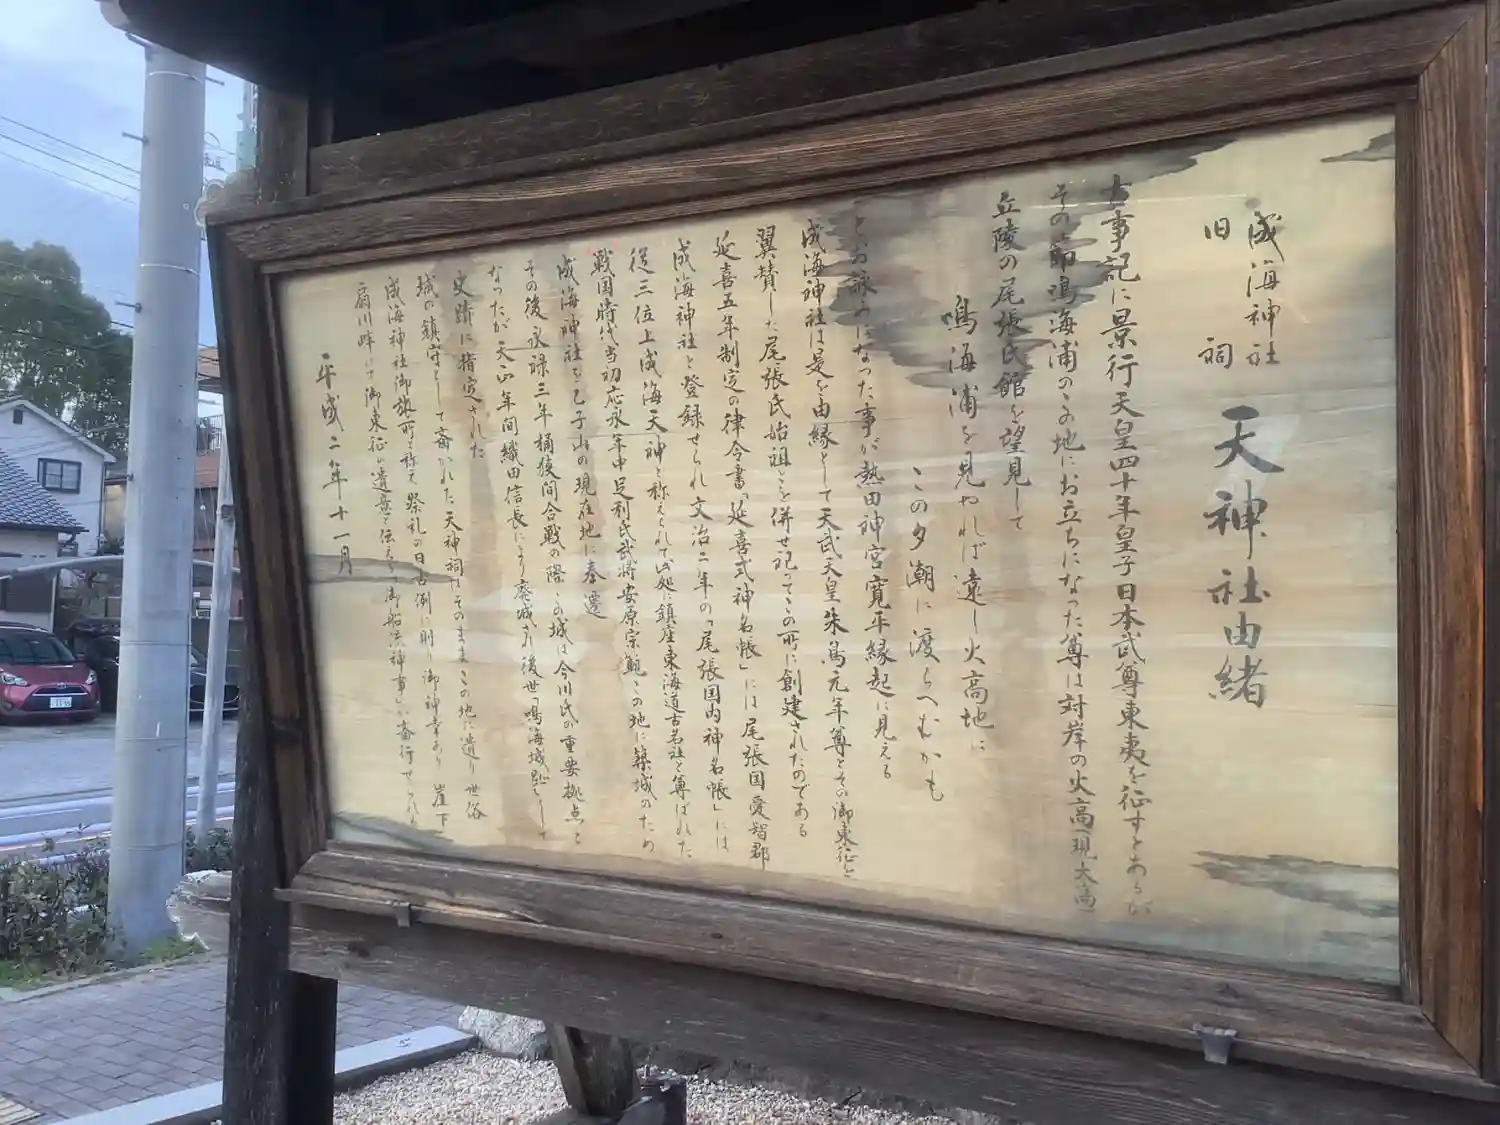 成海神社
旧祠
天神社由緒
古事記に景行天皇四十年皇子日本武尊東夷を征すとあるが
その節鳴海浦のこの地にお立ちになった尊は対岸の火高(現大高)
丘陵の尾張氏館を望見して
鳴海浦を見やれば遠し火高地に
この夕潮に渡らへむかも
とお詠みになった事が熱田神宮寛平縁起に見える
成海神社は是を由縁として天武天皇朱鳥元年尊とその御東征を
翼賛した尾張氏始祖を併せ祀ってこの所に創建されたのである
延喜五年制定の律令書「延喜式神名帳」には尾張国愛智郡
成海神社と登録せられ文治二年の「尾張国内神名帳」には
従三位上成海天神と称えられて此処に鎮座東海道古名社と尊ばれた
戦国時代当初応永年中足利氏武将安原宗範この地に築城のため
成海神社を乙子山の現在地に奉遷
その後永禄三年桶狭間合戦の際この城は今川氏の重要拠点と
なったが天正年間織田信長により廃城され後世鳴海城趾として
史蹟に指定された
城の鎮守として斎かれた天神祠はそのままこの地に遺り世俗
成海神社御旅所と称えて祭礼の日古例に則り御神幸あり崖下
扇川畔にて御東征の遺意を伝える「御船流神事」が斎行せられる
平成二年十一月